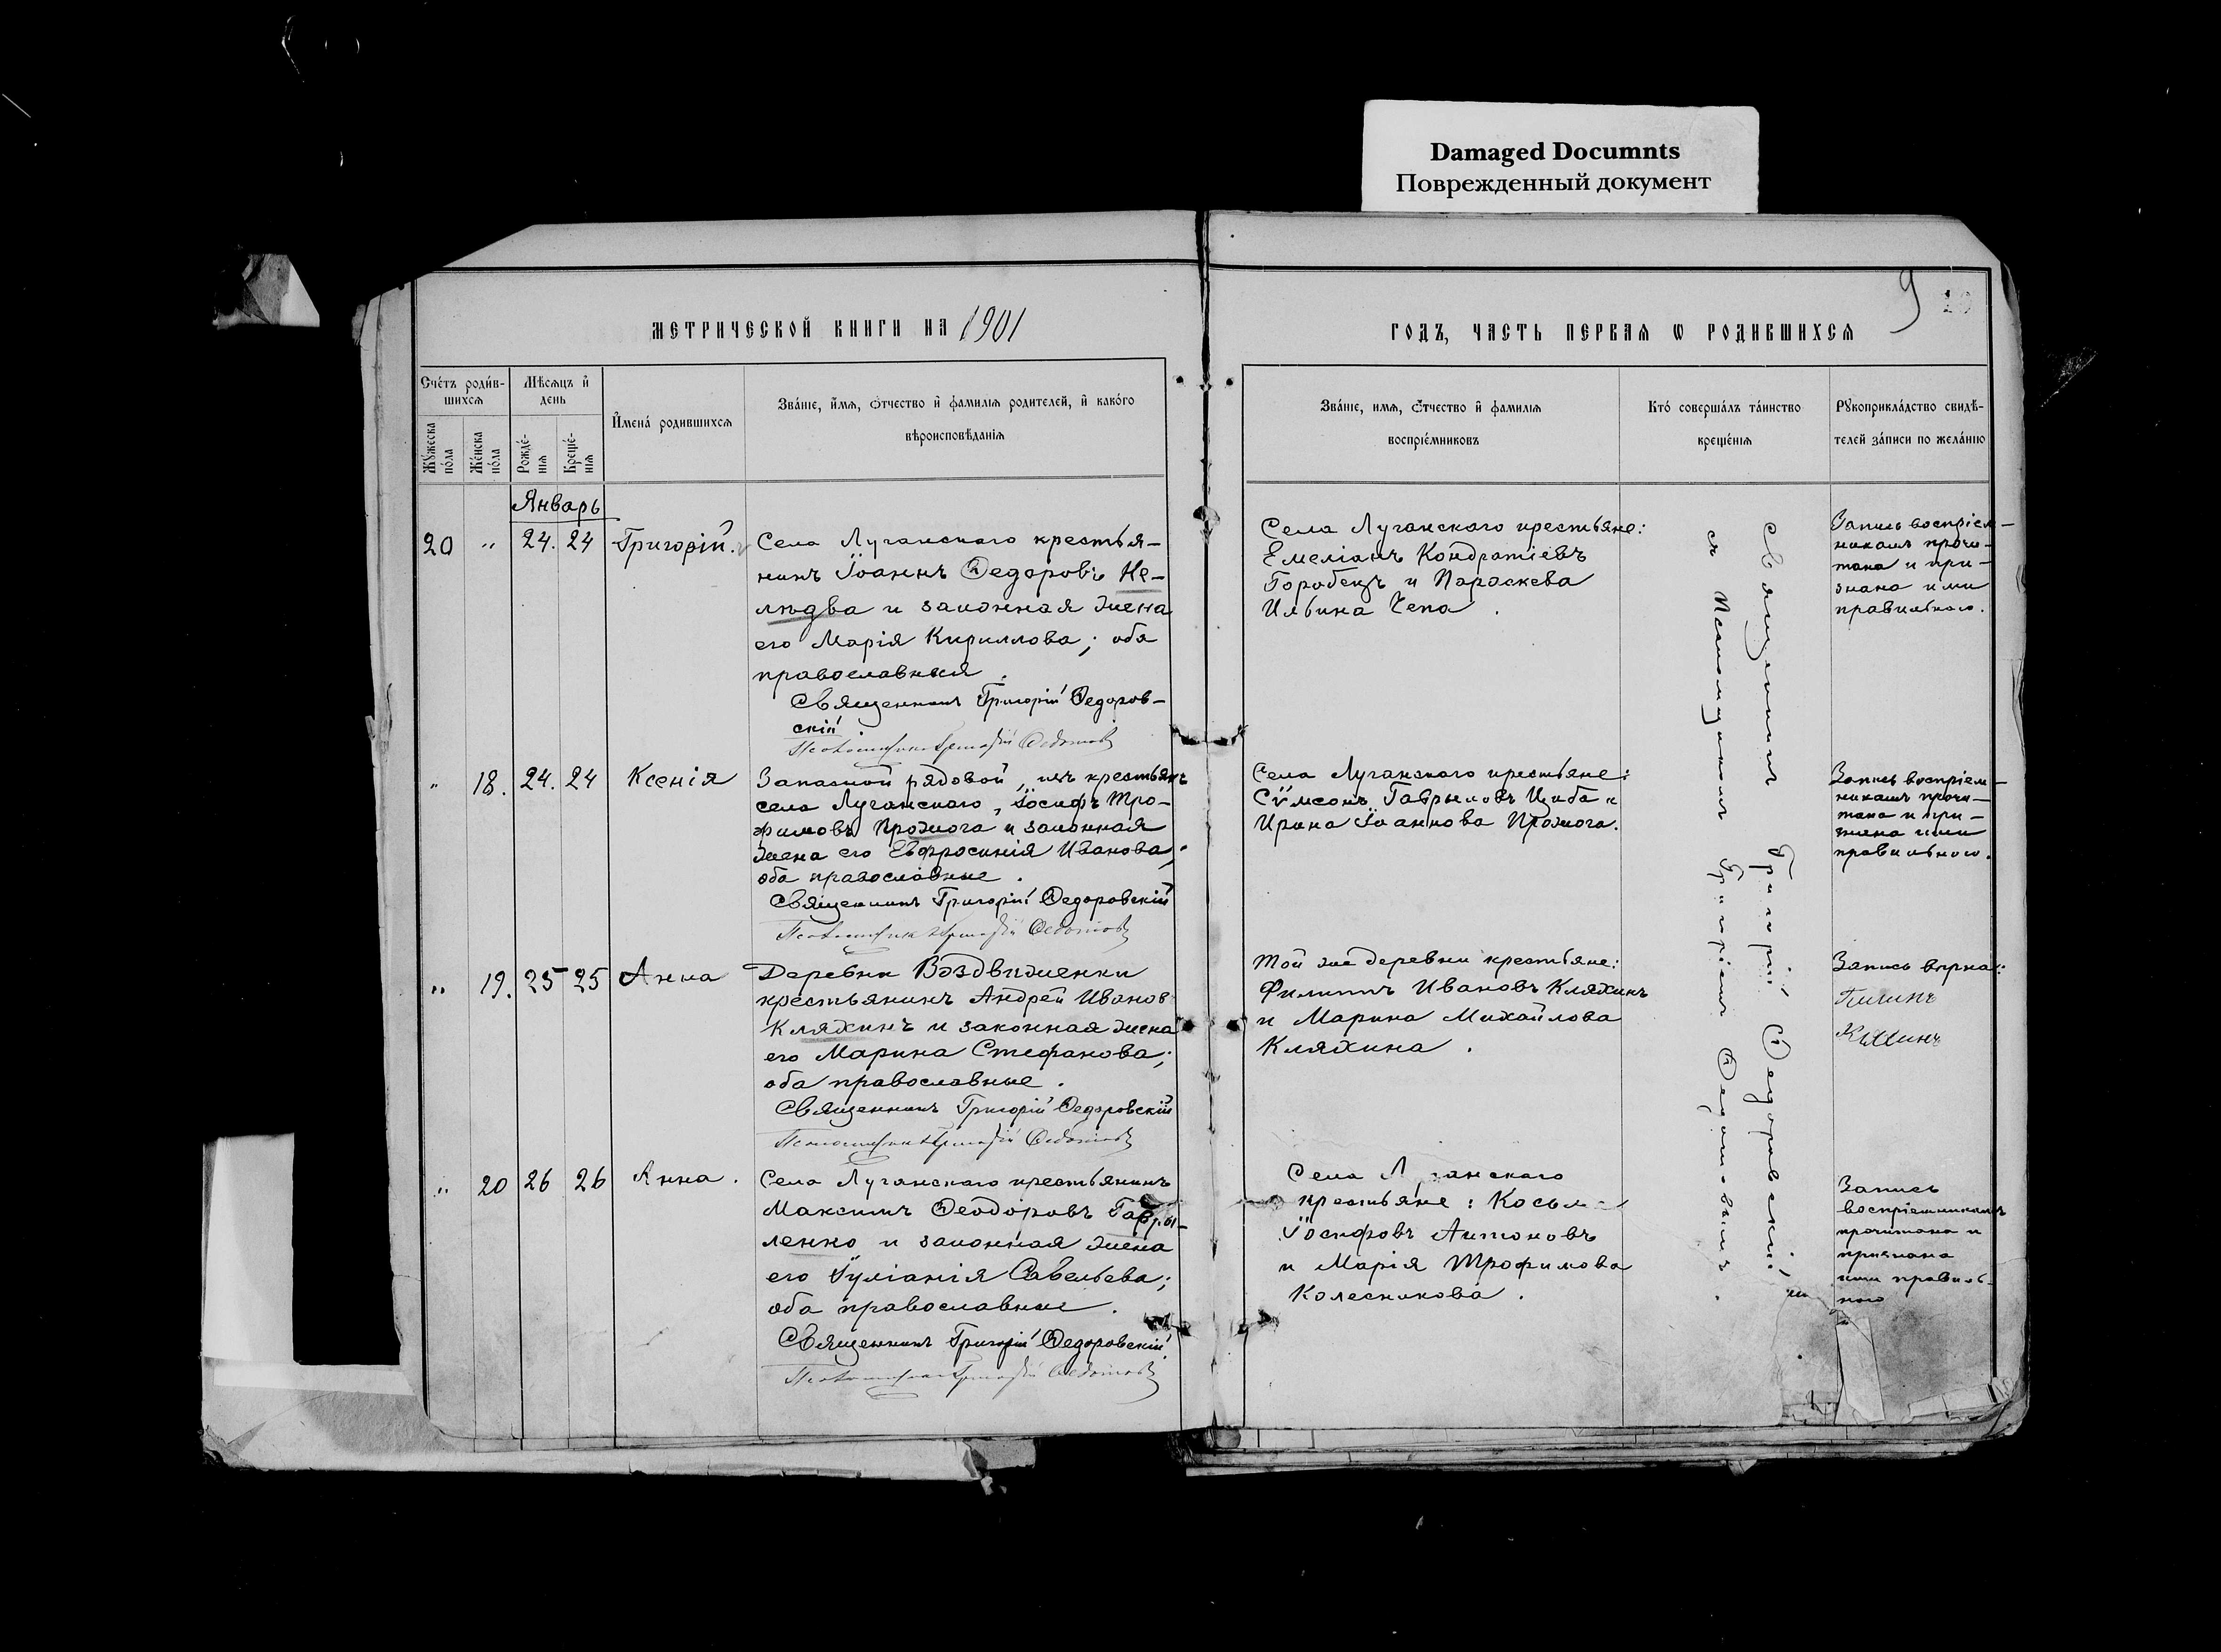 Damaged Documnts
Поврежденный документ
МЕТРИЧЕСКОЙ КНИГИ НА 1901
Счетъ родив-
шихся
Мѣсяцъ и
день
Мужеска
пола
Женска
пола
Рожде-
нія
Креще-
нія
Имена родившихся
Званіе, имя, отчество и фамилія родителей, и какого
вѣроисповѣданія
Январь
20 " 24. 24 Григорій.
Села Луганскаго крестья-
нинъ Іоаннъ Ѳедоровъ Не-
людва и законная жена
его Марія Кириллова; оба
православныя.
Священникъ Григорій Ѳедоров-
скій
Псаломщикъ Григорій Ѳедотовъ
" 18. 24. 24 Ксенія
Запасной рядовой, изъ крестьянъ
села Луганскаго, Іосифъ Тро-
фимовъ Прожога и законная
жена его Евфросинія Иванова;
оба православные.
Священникъ Григорій Ѳедоровскій
Псаломщикъ Григорій Ѳедотовъ
" 19. 25 25 Анна
Деревни Воздвиженки
крестьянинъ Андрей Иванов
Кляхинъ и законная жена
его Марина Стефанова;
оба православные.
Священникъ Григорій Ѳедоровскій
Псаломщикъ Григорій Ѳедотовъ
" 20 26 26 Анна.
Села Луганскаго крестьянинъ
Максимъ Ѳеодоровъ Гаври-
ленко и законная жена
его Іуліанія Савельева;
оба православные.
Священникъ Григорій Ѳедоровскій
Псаломщикъ Григорій Ѳедотовъ
9
ГОДЪ, ЧАСТЬ ПЕРВАЯ Ѡ РОДИВШИХСЯ
Званіе, имя, отчество и фамилія
воспріемниковъ
Кто совершалъ таинство
крещенія
Рукоприкладство свидѣ-
телей записи по желанію
Села Луганскаго крестьяне:
Емеліанъ Кондратіевъ
Горобецъ и Параскева
Ильина Чепа.
Запись воспріем-
никамъ прочи-
тана и при-
знана ими
правильною.
Села Луганскаго крестьяне:
Сѵмеонъ Гавриловъ Цыба и
Ирина Іоаннова Прожога.
Запись воспріем-
никамъ прочи-
тана и при-
знана ими
правильною.
Той же деревни крестьяне:
Филиппъ Ивановъ Кляхинъ
и Марина Михайлова
Кляхина.
Запись вѣрна:
Села Л ганскаго
крестьяне: Косьм
Іосифовъ Антоновъ
и Марія Трофимова
Колесникова.
Запись
воспріемникамъ
прочитана и
признана
ими правиль-
ною
Священникъ Григорій Ѳедоровскій
съ Псаломщикомъ Григоріемъ Ѳедотовымъ.